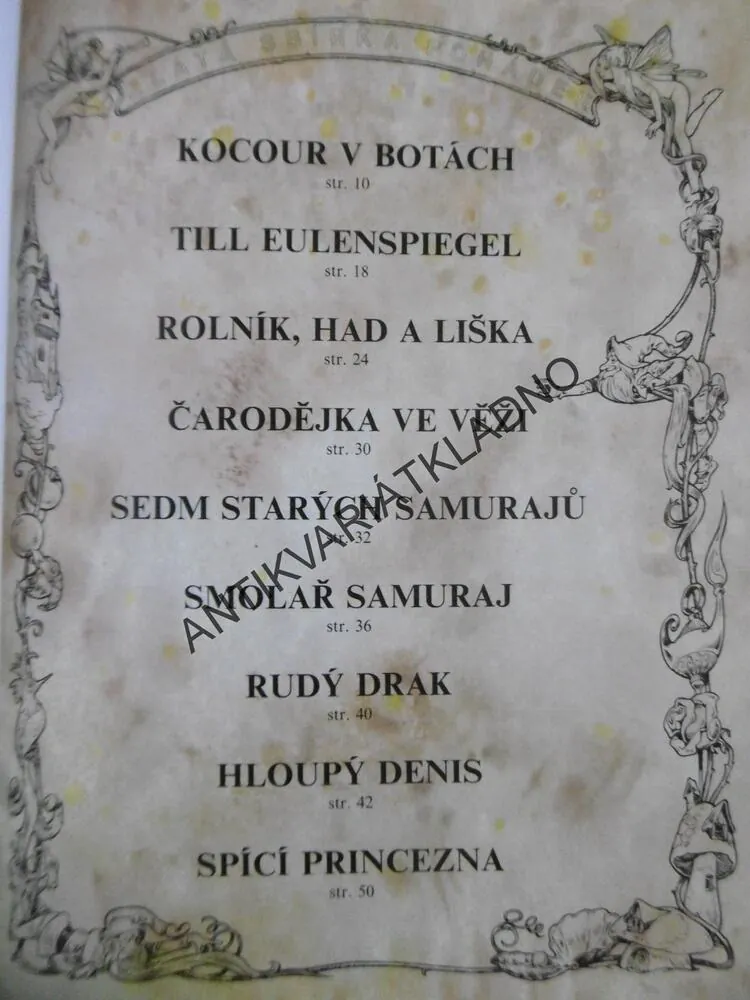 ZLATÁ SBÍRKA POHÁDEK
KOCOUR V BOTÁCH
str. 10
TILL EULENSPIEGEL
str. 18
ROLNÍK, HAD A LIŠKA
str. 24
ČARODĚJKA VE VĚŽI
str. 30
SEDM STARÝCH SAMURAJŮ
str. 32
SMOLAŘ SAMURAJ
str. 36
RUDÝ DRAK
str. 40
HLOUPÝ DENIS
str. 42
SPÍCÍ PRINCEZNA
str. 50
ANTIKVARIÁTKLADNO